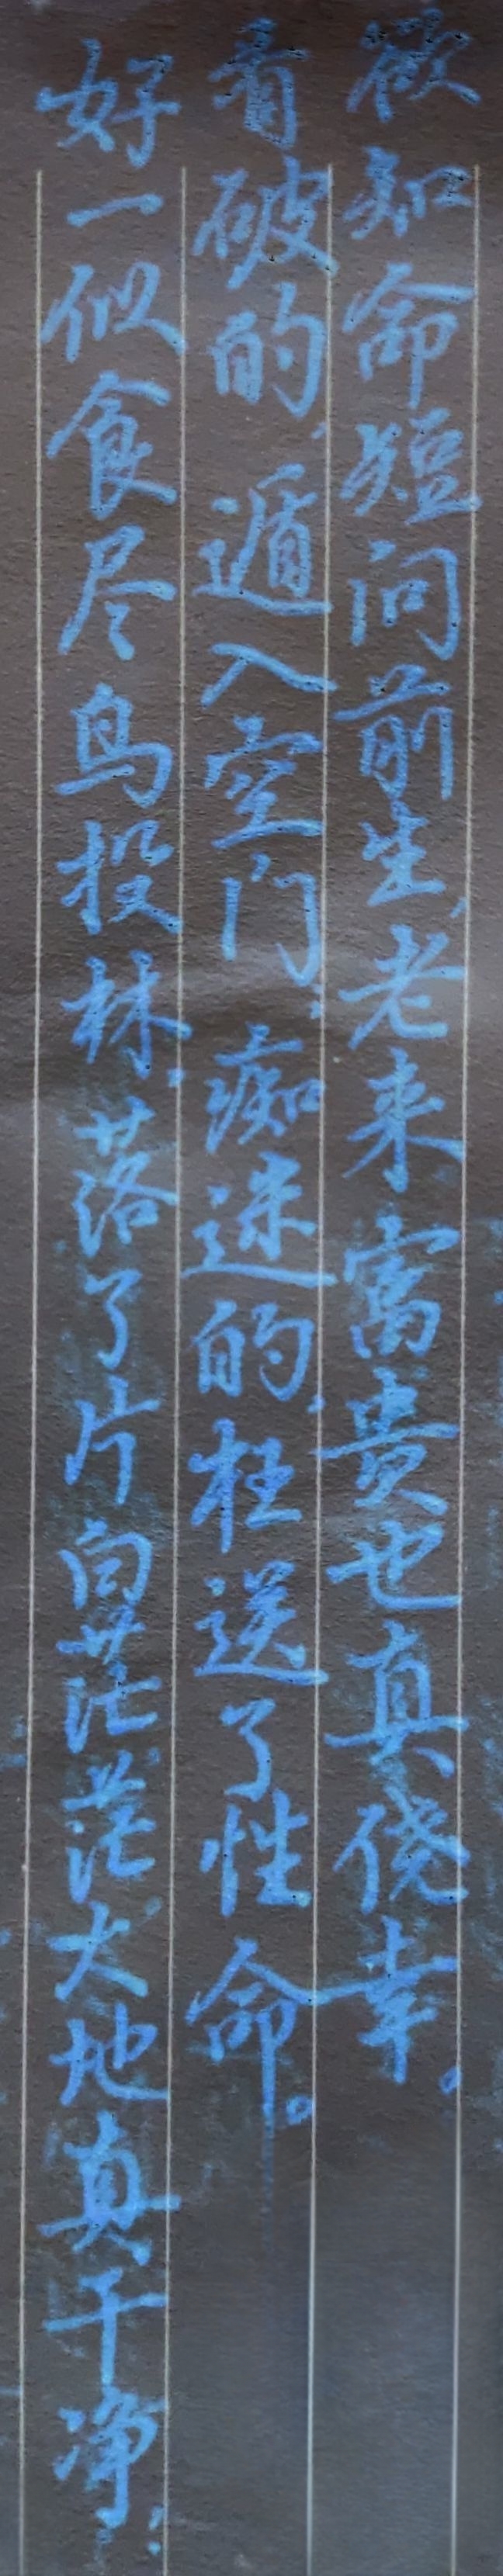 欲知命短问前生,老来富贵也真侥幸。
看破的,遁入空门;痴迷的,枉送了性命。
好一似食尽鸟投林,落了片白茫茫大地真干净!